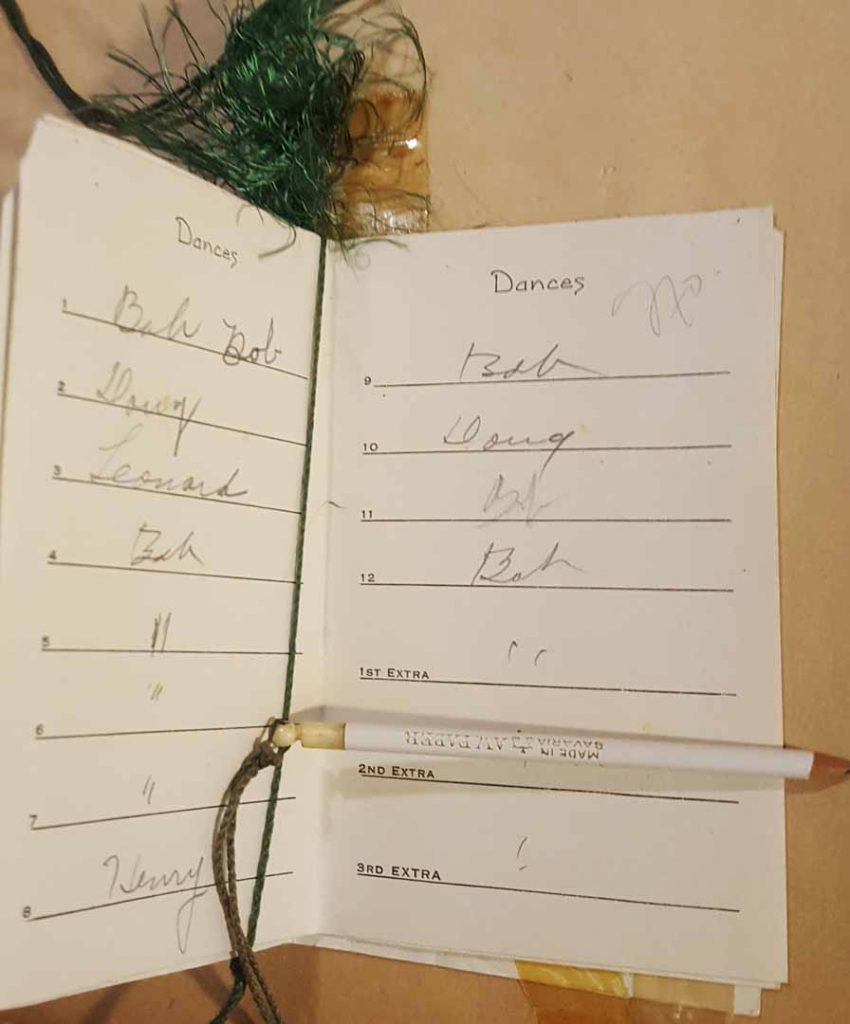 Dances
1 Bob Bob
2 Doug
3 Leonard
4 Bob
5 "
6 "
7 "
8 Henry
Dances
9 Bob
10 Doug
11 Bob
12 Bob
1ST EXTRA "
2ND EXTRA
3RD EXTRA
MADE IN
BAVARIA A.W. FABER